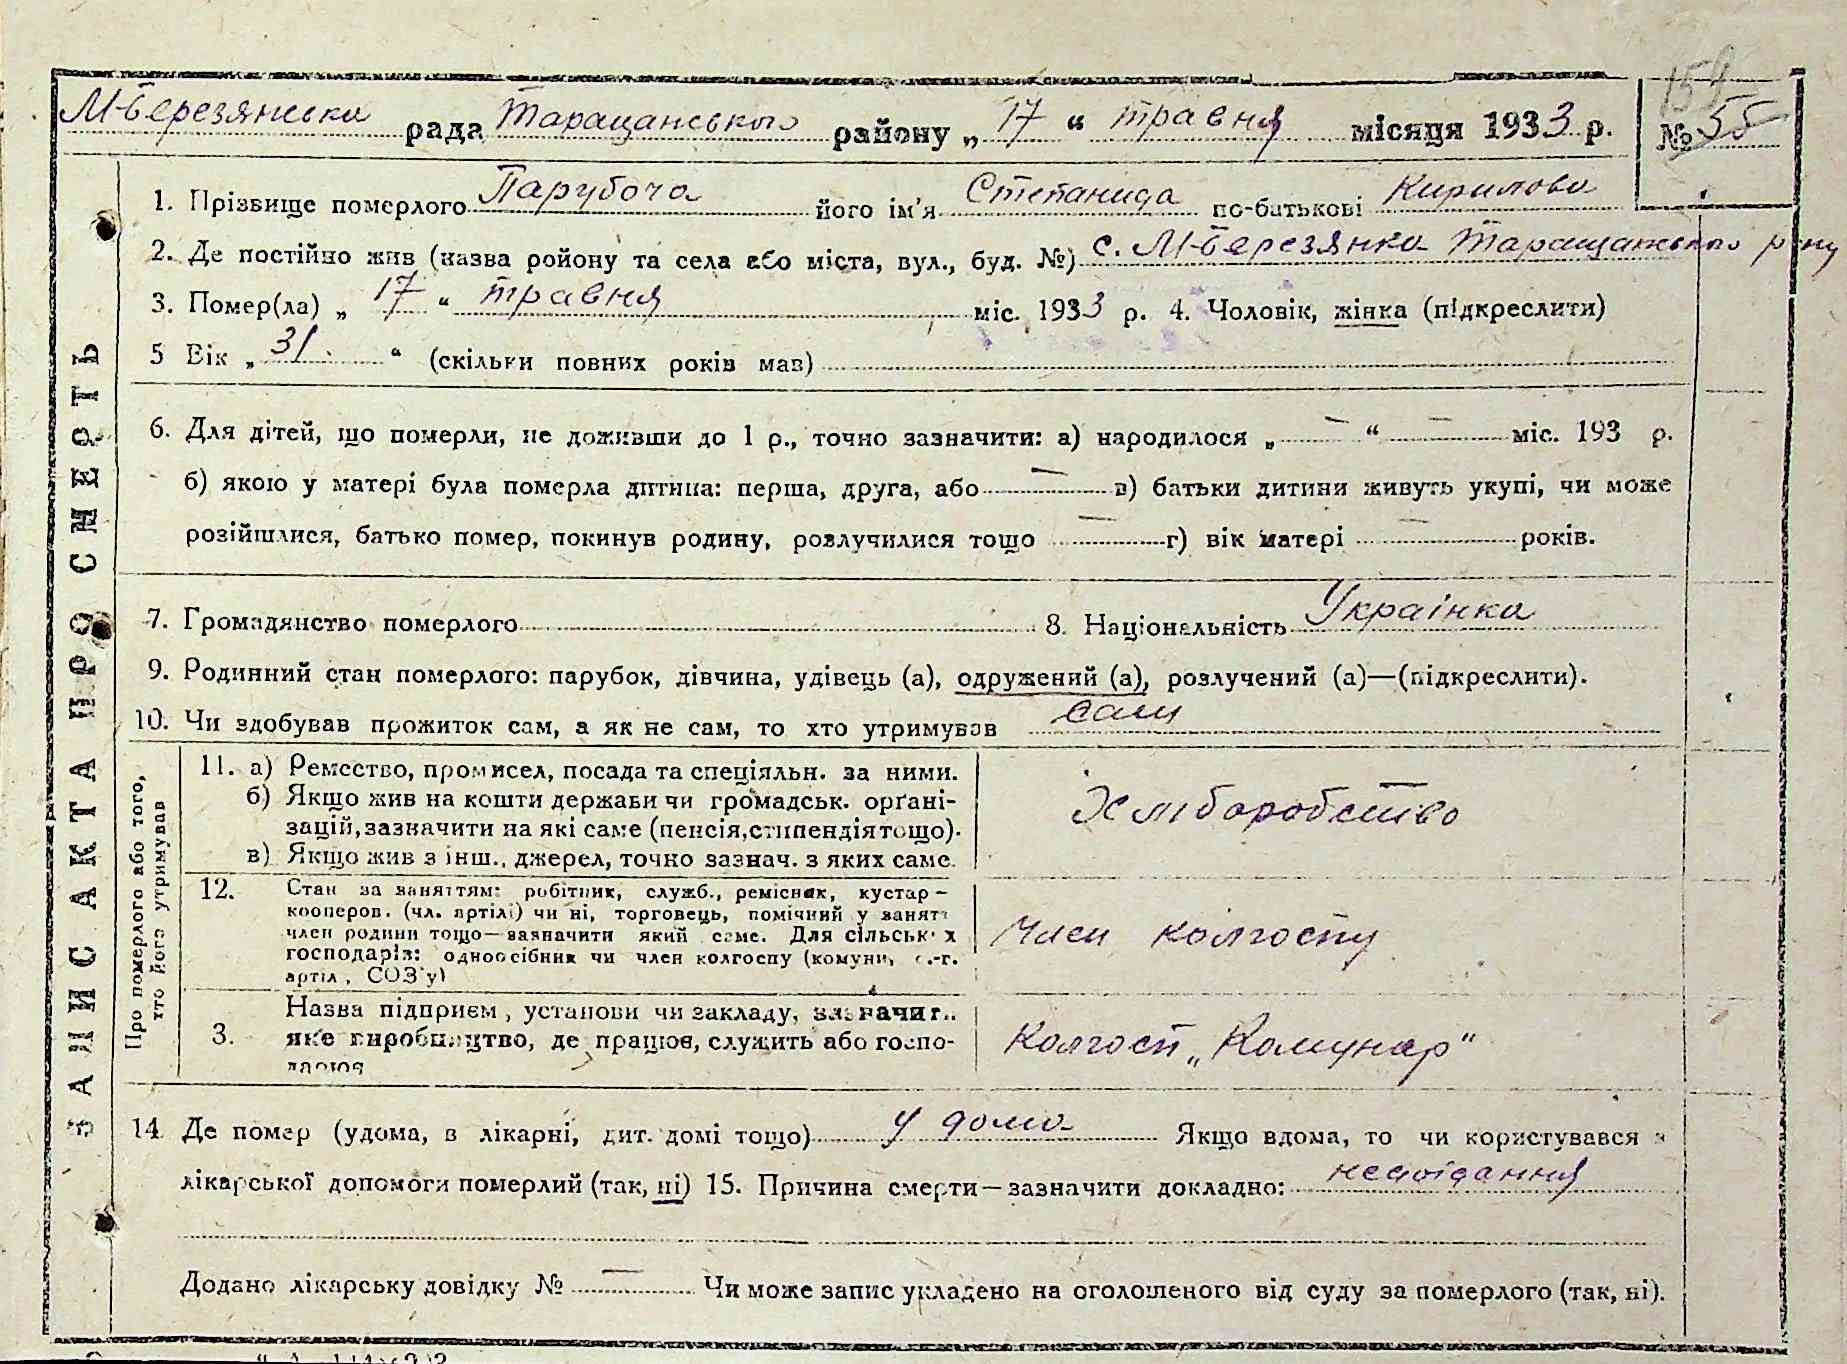 154
М-Березянська рада Таращанського району „17“ травня місяця 1933 р. № 55
ЗАПИС АКТА ПРО СМЕРТЬ
1. Прізвище померлого Парубоча його ім'я Степанида по-батькові Кирилова
2. Де постійно жив (назва ройону та села або міста, вул., буд. №) с. М-Березянка Таращанського р-ну
3. Помер(ла) „17“ травня міс. 1933 р. 4. Чоловік, жінка (підкреслити)
5 Вік „31.“ (скільки повних років мав)
6. Для дітей, що померли, не доживши до 1 р., точно зазначити: а) народилося „—“ — міс. 193 р.
б) якою у матері була померла дитина: перша, друга, або — в) батьки дитини живуть укупі, чи може
розійшлися, батько помер, покинув родину, розлучилися тощо — г) вік матері — років.
7. Громадянство померлого 8. Національність Українка
9. Родинний стан померлого: парубок, дівчина, удівець (а), одружений (а), розлучений (а)—(підкреслити).
10. Чи здобував прожиток сам, а як не сам, то хто утримував сам
Про померлого або того,
хто його утримував
11. а) Ремество, промисел, посада та спеціяльн. за ними.
б) Якщо жив на кошти держави чи громадськ. орґані-
зацій, зазначити на які саме (пенсія, стипендія тощо).
в) Якщо жив з інш., джерел, точно зазнач. з яких саме.
Хліборобство
12. Стан за заняттям: робітник, служб., ремісник, кустар—
кооперов. (чл. артілі) чи ні, торговець, помічний у занятт
член родини тощо—зазначити який саме. Для сільськ х
господарів: одноосібник чи член колгоспу (комуни, с.-г.
артіл, СОЗ'у)
Член колгоспу
3. Назва підприєм, установи чи закладу, зазначит..
яке виробництво, де працює, служить або госпо-
дарює
Колгосп „Комунар“
14 Де помер (удома, в лікарні, дит. домі тощо) у дома Якщо вдома, то чи користувався з
лікарської допомоги померлий (так, ні) 15. Причина смерти—зазначити докладно: недоїдання
Додано лікарську довідку № — Чи може запис укладено на оголошеного від суду за померлого (так, ні).